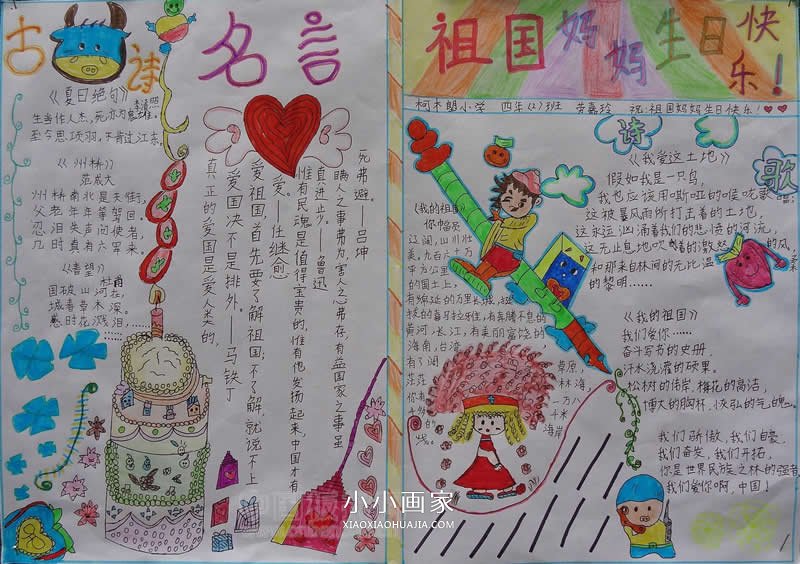 古诗
《夏日绝句》
李清照
生当作人杰,死亦为鬼雄。
至今思项羽,不肯过江东。
《州桥》
范成大
州桥南北是天街,
父老年年等驾回。
忍泪失声问使者,
几时真有六军来。
《春望》
杜甫
国破山河在,
城春草木深。
感时花溅泪,……
名言
兄弗避。——吕坤
瞒人之事弗为,害人之心弗存,有益国家之事虽
直进步。——鲁迅
惟有民魂是值得宝贵的,惟有他发扬起来,中国才有
爱。——任继愈
爱祖国,首先要了解祖国;不了解,就说不上
爱国决不是排外。——马铁丁
真正的爱国是爱人类的,
祖国妈妈生日快乐!
柯木朗小学 四年(2)班 劳嘉玲 祝:祖国妈妈生日快乐!
诗歌
《我爱这土地》
假如我是一只鸟,
我也应该用嘶哑的喉咙歌唱:
这被暴风雨所打击着的土地,
这永远汹涌着我们的悲愤的河流,
这无止息地吹刮着的激怒的风,
和那来自林间的无比温
的黎明……
《我的祖国》
我们爱你……
奋斗写书的史册,
汗水浇灌的硕果。
松树的伟岸,梅花的高洁,
博大的胸怀,恢弘的气魄。
我们骄傲,我们自豪,
我们奋发,我们开拓,
你是世界民族之林的强者
我们爱你啊,中国!
《我的祖国》
你幅员
辽阔,山川壮
美,九百六十万
平方公里
的国土上,
有绵延的万里长城,挺
拔的喜马拉雅山,有奔腾不息的
黄河、长江,有美丽富饶的
海南,台湾
有辽阔
草原,
林海,
一万八
千米
海岸
小小画家
XIAOXIAOHUAJIA.COM